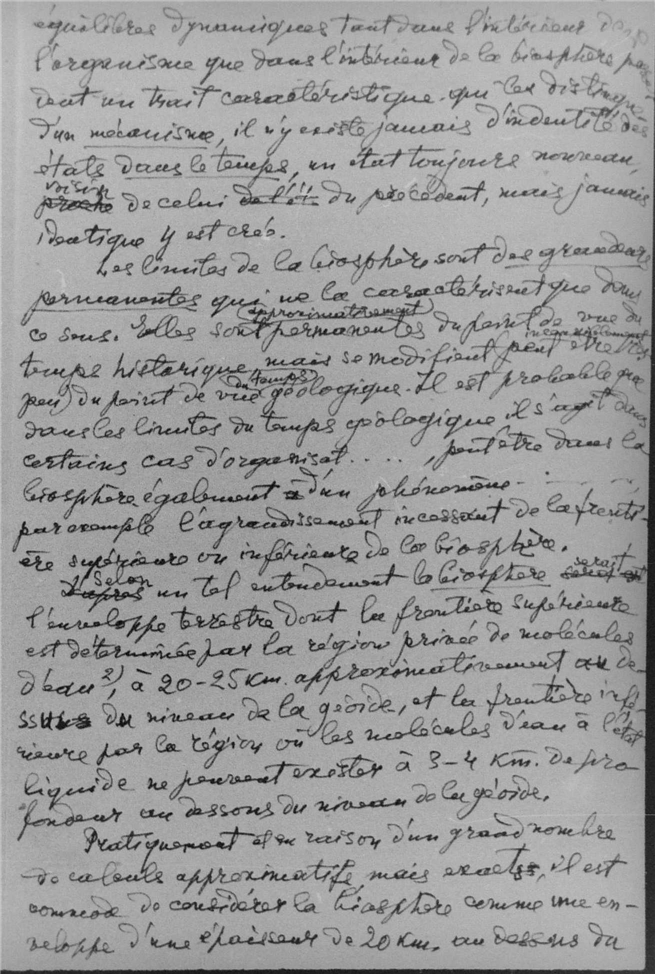 équilibres dynamiques tant dans l'intérieur de
l'organisme que dans l'intérieur de la biosphère possè-
dent un trait caractéristique qui les distingue
d'un mécanisme, il n'y existe jamais d'indentité des
états dans le temps, un état toujours nouveau,
voisin
proche de celui de l'ét du précédent, mais jamais
identique y est créé.
Les limites de la biosphère sont des grandeurs
permanentes qui ne la caractérisent que dans
approximativement
ce sens. Elles sont permanentes du point de vue du
temps historique, mais se modifient peut être très
du temps
peu) du point de vue géologique. Il est probable que
dans les limites du temps géologique il s'agit dans
certains cas d'organisat . . . . , peut être dans la
biosphère également d'un phénomène
par exemple l'agrandissement incessant de la fronti-
ère supérieure ou inférieure de la biosphère.
Selon serait
D'après un tel entendement la biosphère serait
l'enveloppe terrestre dont la frontière supérieure
est déterminée par la région privée de molécules
d'eau 2), à 20-25 km. approximativement au de-
ssus du niveau de la géoide, et la frontière infé-
rieure par la région où les molécules d'eau à l'état
liquide ne peuvent exister à 3-4 km. de pro
fondeur au dessous du niveau de la géoide.
Pratiquement et en raison d'un grand nombre
de calculs approximatifs, mais exacts, il est
commode de considérer la biosphère comme une en-
veloppe d'une épaisseur de 20 km. au dessous du